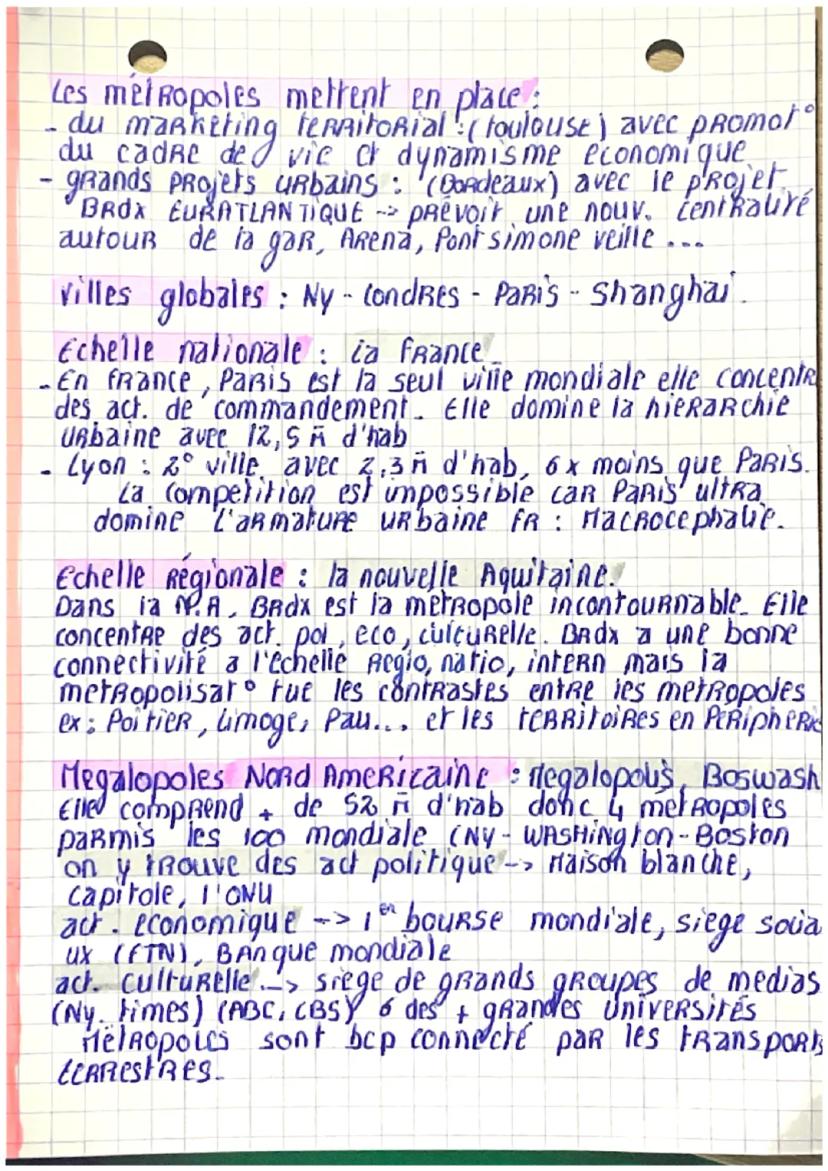 Les métropoles mettent en place :
- du marketing territorial : (toulouse) avec promot°
du cadre de vie et dynamisme economique
- grands projets urbains : (Bordeaux) avec le projet
BRDX EURATLANTIQUE -> prévoit une nouv. centralité
autour de la gar, Arena, Pont simone veille ...
Villes globales : Ny - Londres - Paris - Shanghai.
Echelle nationale : la france
- En france, Paris est la seul ville mondiale elle concentre
des act. de commandement. Elle domine la hierarchie
urbaine avec 12,5 M d'hab
- Lyon : 2° ville avec 2,3 M d'hab, 6x moins que Paris.
La competition est impossible car Paris ultra
domine l'armature urbaine FR : Macrocephalie.
Echelle Régionale : la nouvelle Aquitaine.
Dans la N.A, BRDX est la metropole incontournable. Elle
concentre des act. pol, eco, culturelle. BRDX a une bonne
connectivité a l'échelle regio, natio, intern mais la
metropolisat° tue les contrastes entre les metropoles
ex : Poitier, Limoge, Pau... et les territoires en Peripherie
Megalopoles Nord Americaine : Megalopolis, Boswash
Elle comprend + de 52 M d'hab donc 4 metropoles
parmis les 100 mondiale (NY - Washington - Boston
on y trouve des act politique -> Maison blanche,
capitole, l'ONU
act. economique -> 1er bourse mondiale, siege socia
ux (FTN), Banque mondiale
act. culturelle -> siege de grands groupes de medias
(Ny. times) (ABC, CBS) 6 des + grandes universités
Métropoles sont bcp connecté par les transports
terrestres.